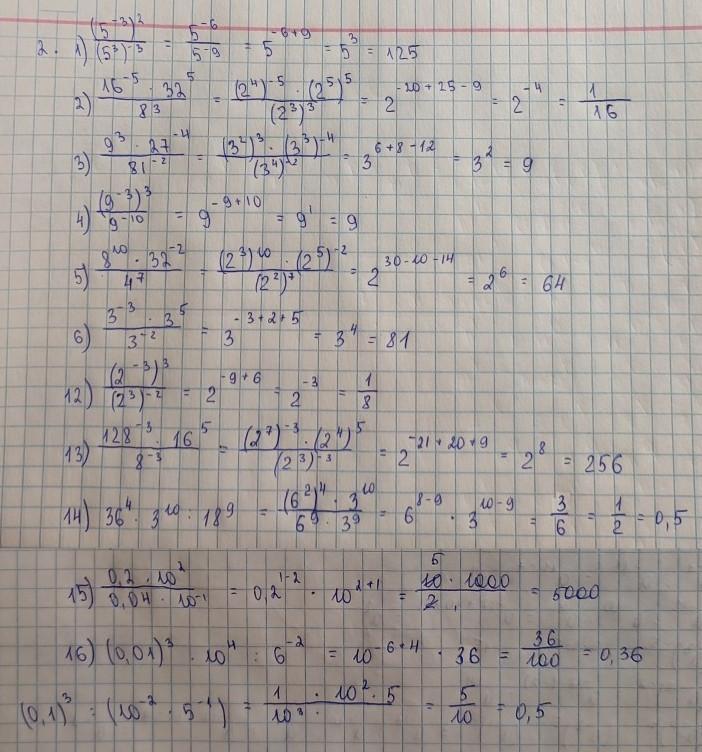 2. 1) (5⁻³)²/(5³)⁻³ = 5⁻⁶/5⁻⁹ = 5⁻⁶⁺⁹ = 5³ = 125
2) 16⁻⁵ · 32⁵/8³ = (2⁴)⁻⁵ · (2⁵)⁵/(2³)³ = 2⁻²⁰⁺²⁵⁻⁹ = 2⁻⁴ = 1/16
3) 9³ · 27⁻⁴/81⁻² = (3²)³ · (3³)⁻⁴/(3⁴)⁻² = 3⁶⁺⁸⁻¹² = 3² = 9
4) (9⁻³)³/9⁻¹⁰ = 9⁻⁹⁺¹⁰ = 9¹ = 9
5) 8¹⁰ · 32⁻²/4⁷ = (2³)¹⁰ · (2⁵)⁻²/(2²)⁷ = 2³⁰⁻¹⁰⁻¹⁴ = 2⁶ = 64
6) 3⁻³ · 3⁵/3⁻² = 3⁻³⁺²⁺⁵ = 3⁴ = 81
12) (2⁻³)³/(2³)⁻² = 2⁻⁹⁺⁶ = 2⁻³ = 1/8
13) 128⁻³ · 16⁵/8⁻³ = (2⁷)⁻³ · (2⁴)⁵/(2³)⁻³ = 2⁻²¹⁺²⁰⁺⁹ = 2⁸ = 256
14) 36⁴ · 3¹⁰ : 18⁹ = (6²)⁴ · 3¹⁰/6⁹ · 3⁹ = 6⁸⁻⁹ · 3¹⁰⁻⁹ = 3/6 = 1/2 = 0,5
15) 0,2 · 10²/0,04 · 10⁻¹ = 0,2¹⁻² · 10²⁺¹ = 5 10 · 1000/2 = 5000
16) (0,01)³ · 10⁴ : 6⁻² = 10⁻⁶⁺⁴ · 36 = 36/100 = 0,36
(0,1)³ : (10⁻² · 5⁻¹) = 1 · 10² · 5/10³ = 5/10 = 0,5